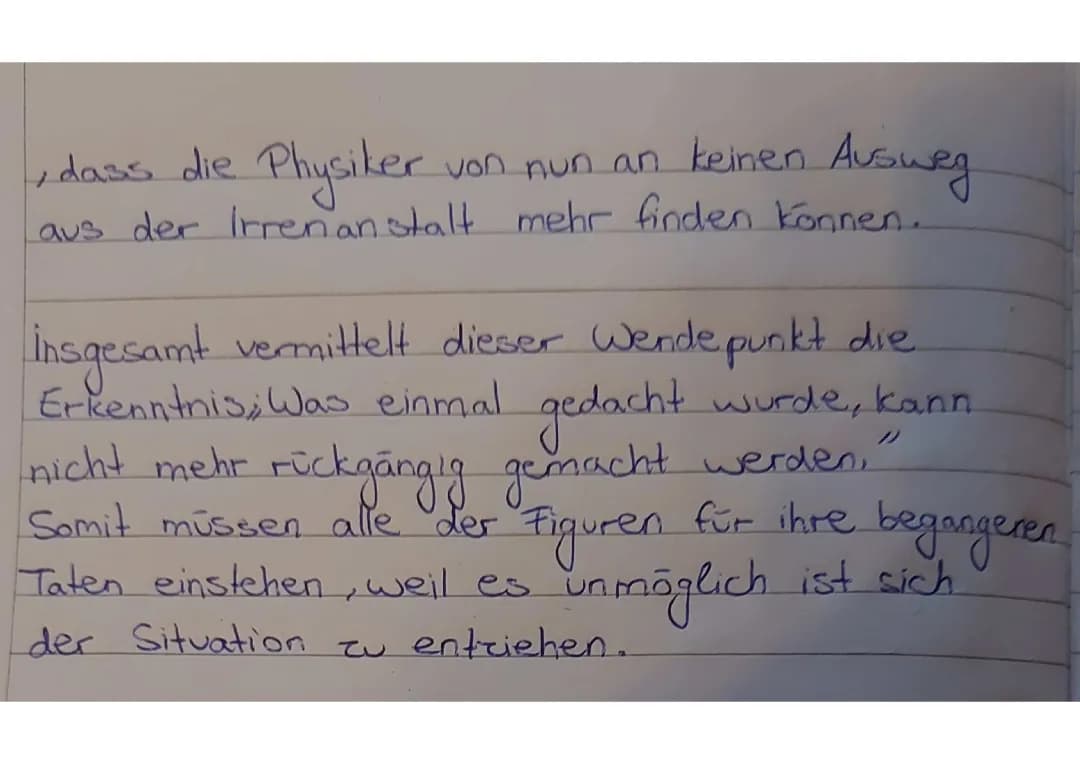 , dass die Physiker von nun an keinen Ausweg
aus der Irrenanstalt mehr finden können.
insgesamt vermittelt dieser Wendepunkt die
Erkenntnis;„Was einmal gedacht wurde, kann
nicht mehr rückgängig gemacht werden."
Somit müssen alle der Figuren für ihre begangeren
Taten einstehen, weil es unmöglich ist sich
der Situation zu entziehen.